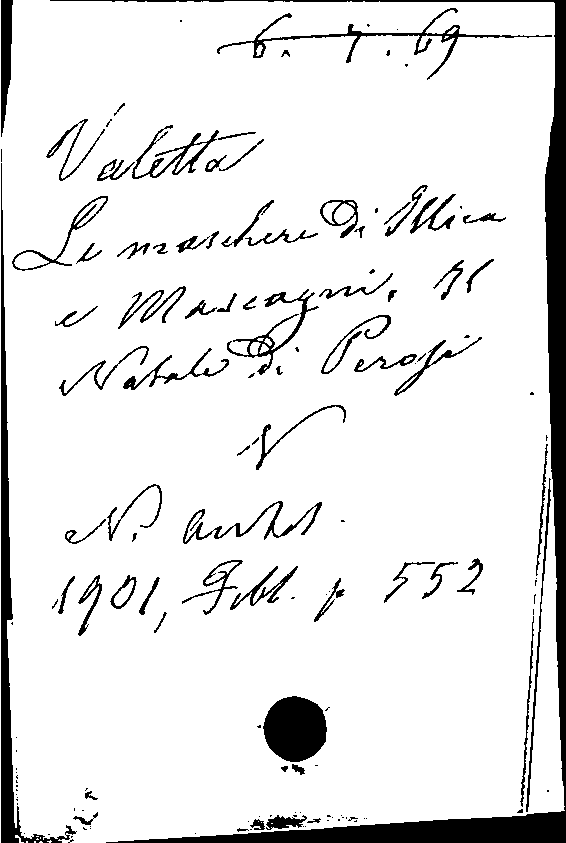 6. 7. 69
Valetta
Le maschere di Illica
e Mascagni. Il
Natale di Perosi
V
N. Antol.
1901, Febb. p 552